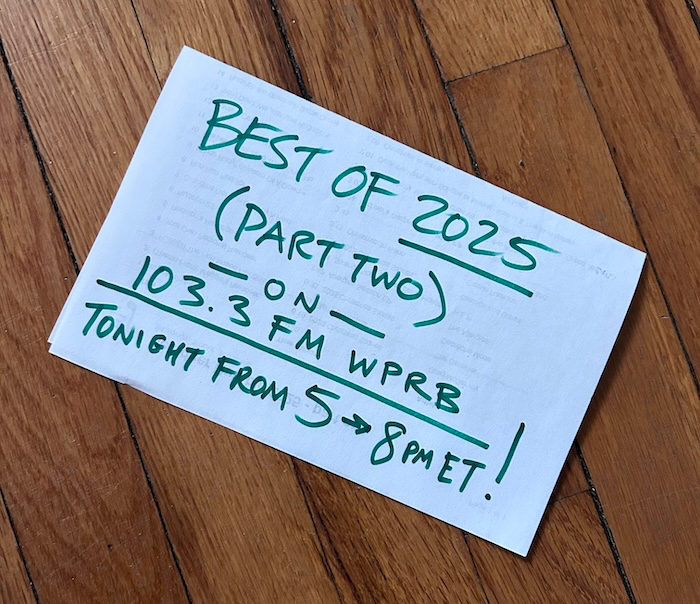 BEST OF 2025
(PART TWO)
— ON —
103.3 FM WPRB
TONIGHT FROM 5 → 8PM ET!